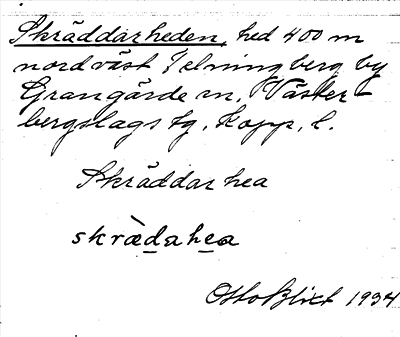 Skräddarheden, hed 400 m
nordväst Telningberg by
Grangärde sn, Väster-
bergslags tg, Kopp. l.
Skräddar hea
skrädahea
Otto Blixt 1934